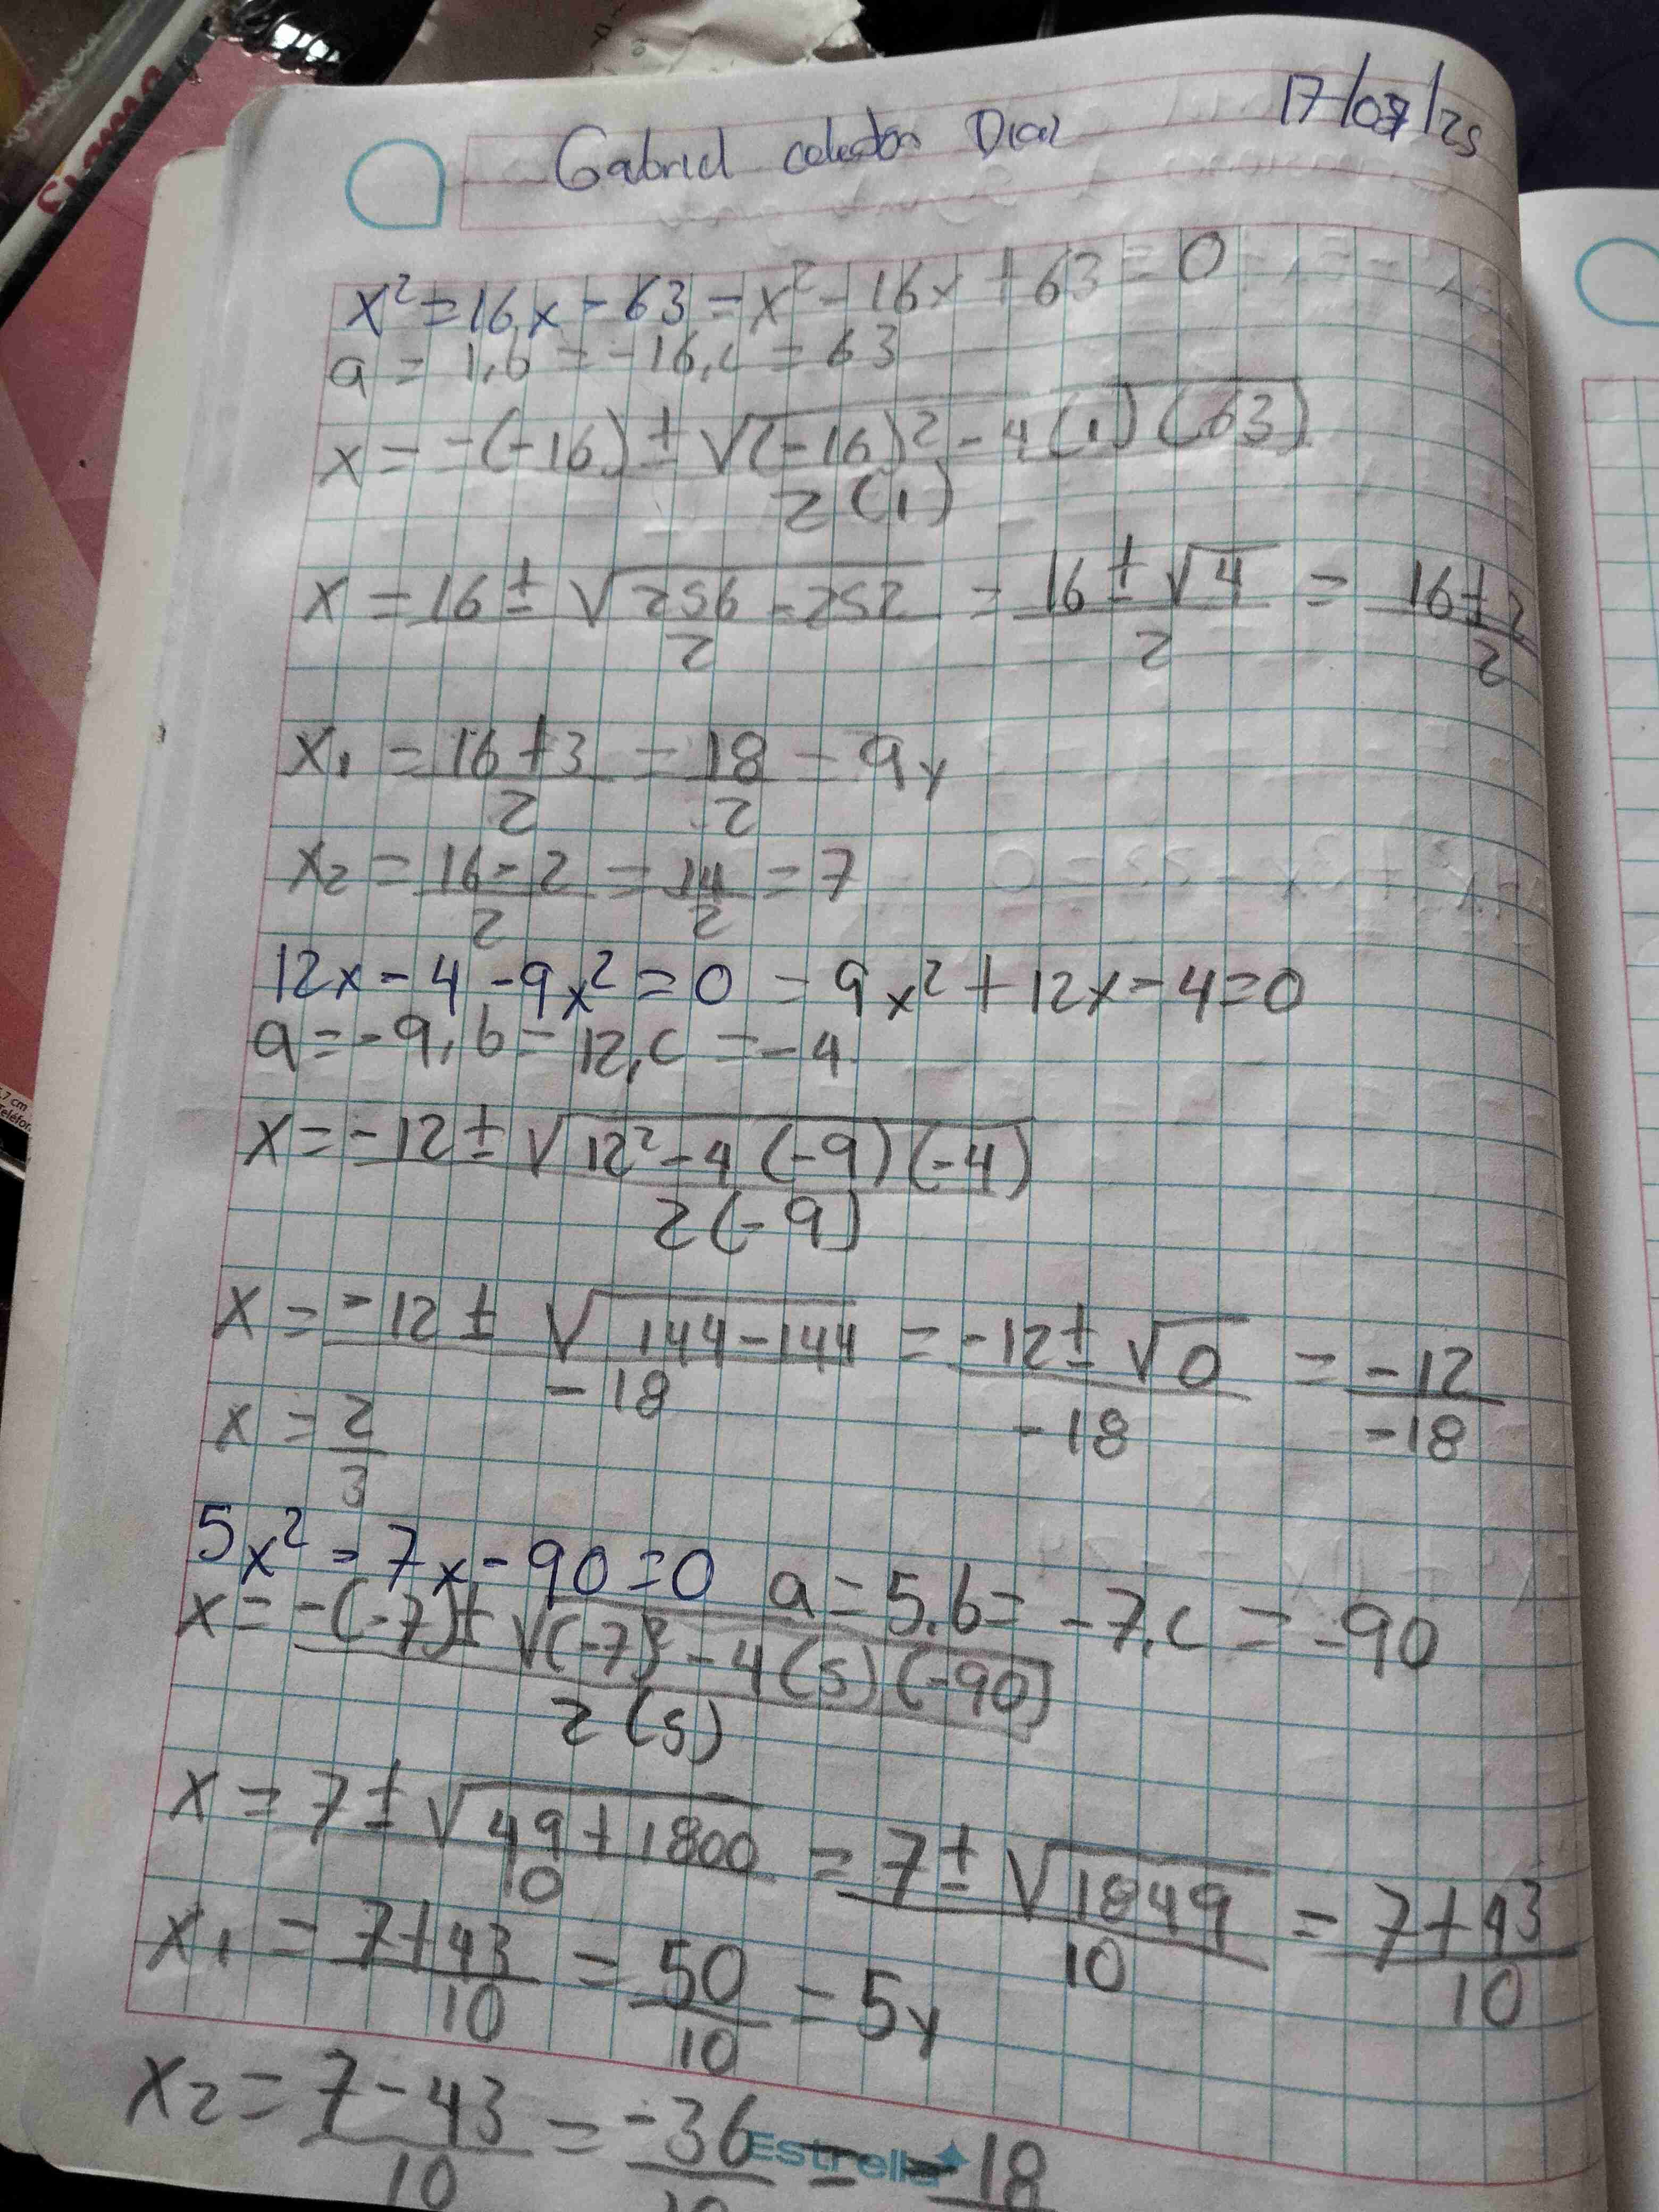 Gabriel 17/03/25
x² = 16x - 63 = x² - 16x + 63 = 0
a = 1, b = -16, c = 63
x = -(-16) ± √(-16)² - 4(1)(63)
2(1)
x = 16 ± √256 - 252 = 16 ± √4 = 16 ± 2
2 2 2
x₁ = 16 + 3 = 18 = 9 y
2 2
x₂ = 16 - 2 = 14 = 7
2 2
12x - 4 - 9x² = 0 = 9x² + 12x - 4 = 0
a = -9, b = 12, c = -4
x = -12 ± √12² - 4(-9)(-4)
2(-9)
x = -12 ± √144 - 144 = -12 ± √0 = -12
-18 -18 -18
x = 2
3
5x² - 7x - 90 = 0 a = 5, b = -7, c = -90
x = -(-7) ± √(-7)² - 4(5)(-90)
2(5)
x = 7 ± √49 + 1800 = 7 ± √1849 = 7 + 43
10 10 10
x₁ = 7 + 43 = 50 = 5 y
10 10
x₂ = 7 - 43 = -36 = -18
10 10
Estrella